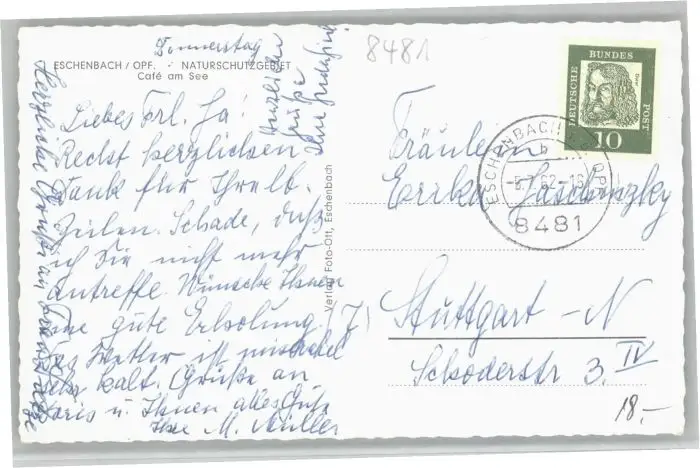 Donnerstag
8481
ESCHENBACH / OPF. · NATURSCHUTZGEBIET
Café am See
Liebes Frl. Ja!
Recht herzlichen
Dank für Ihre lb.
Zeilen. Schade, daß
ich Sie nicht mehr
antreffe. Wünsche Ihnen
eine gute Erholung
Das Wetter ist
sehr kalt. Grüße an
Doris u. Ihnen alles Gute
Ihre M. Müller
Herzliche Grüße an
Grüße
Ihre
Verlag Foto-Ott, Eschenbach
DEUTSCHE BUNDESPOST
Dürer
10
ESCHENBACH OPF
b
-5.7.62-16
8481
Fräulein
Erika Jaschinzky
(7) Stuttgart-N
Schoderstr 3. IV
18,-